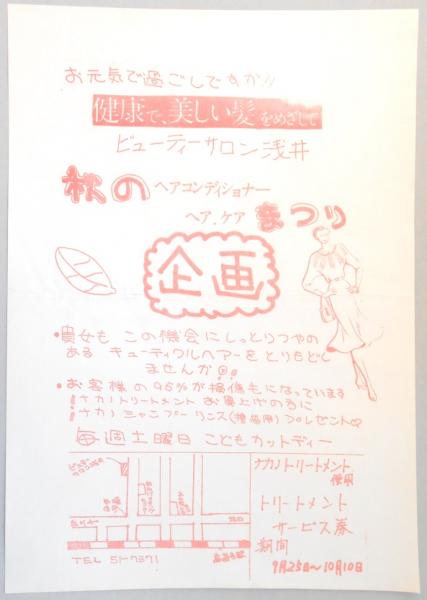 お元気で過ごしですか!!
健康で、美しい髪をめざして
ビューティーサロン浅井
秋の ヘアコンディショナー
ヘア.ケア まつり
企画
・貴女も この機会にしっとりつやの
ある キューティクルヘアーをとりもどし
ませんか
・お客様の95%が損傷毛になっています
ナカノトリートメント お買上の方に
ナカノシャンプー リンス(損傷用) プレゼント♡
毎週土曜日 こどもカットディー
ナカノトリートメント
使用
トリートメント
サービス券
期間
9月25日〜10月10日
TEL 51-7871